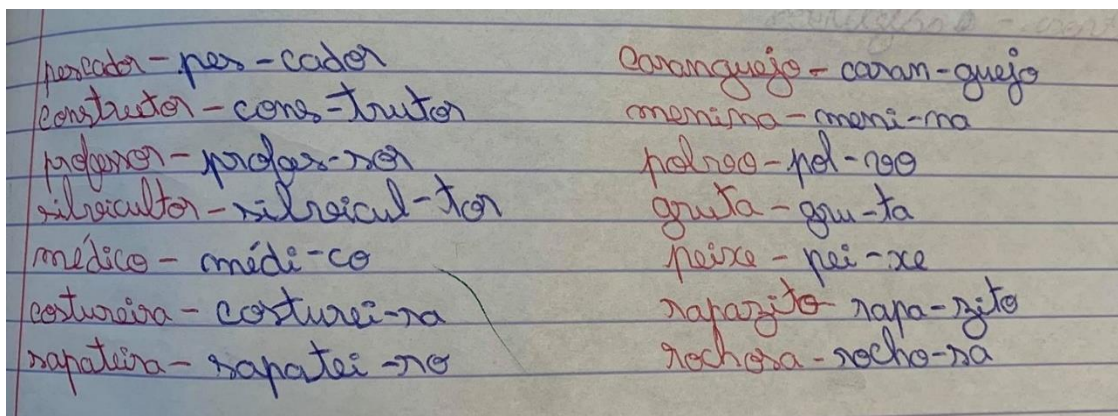 pescador - pes - cador
construtor - cons - trutor
professor - profes - sor
silvicultor - silvicul - tor
médico - médi - co
costureira - costurei - ra
sapateira - sapatei - ro
caranguejo - caran - guejo
menina - meni - na
polvo - pol - vo
gruta - gru - ta
peixe - pei - xe
rapazito - rapa - zito
rochosa - rocho - sa